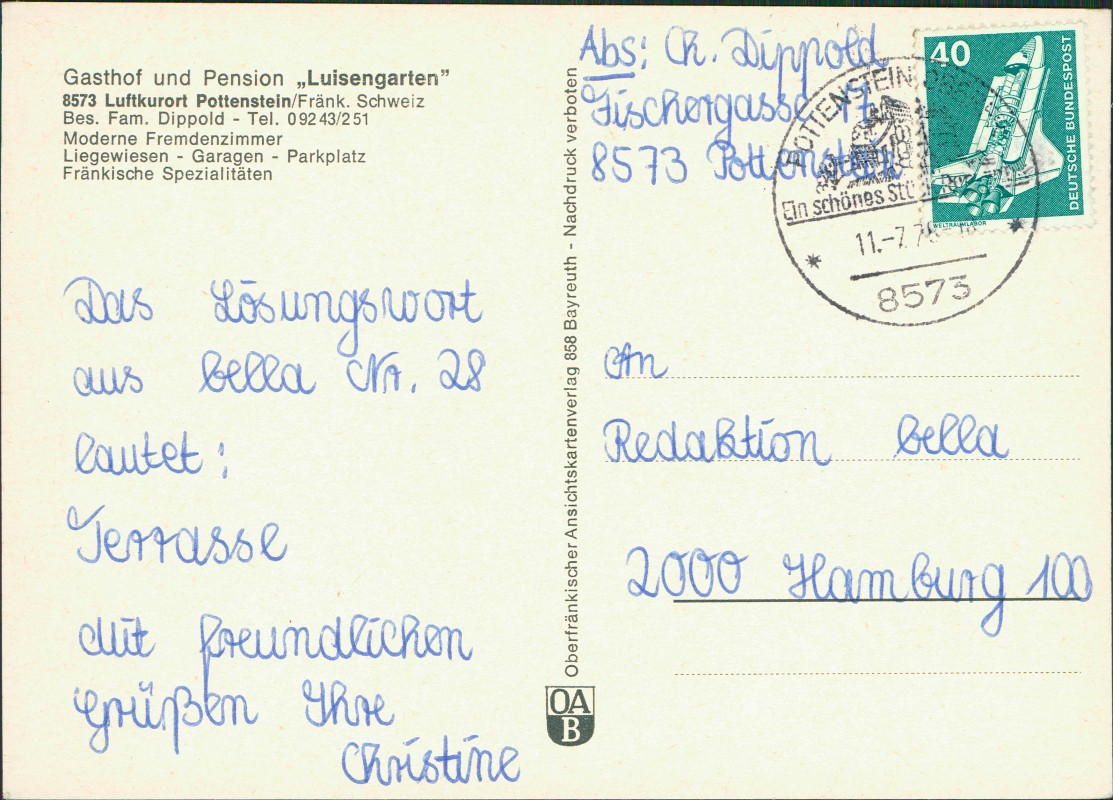 Gasthof und Pension „Luisengarten”
8573 Luftkurort Pottenstein/Fränk. Schweiz
Bes. Fam. Dippold - Tel. 09243/251
Moderne Fremdenzimmer
Liegewiesen - Garagen - Parkplatz
Fränkische Spezialitäten
Das Lösungswort
aus bella Nr. 28
lautet:
Terrasse
Mit freundlichen
Grüßen Ihre
Christine
Oberfränkischer Ansichtskartenverlag 858 Bayreuth - Nachdruck verboten
OA
B
Abs: Ch. Dippold
Fischergasse 17
8573 Pottenstein
40
DEUTSCHE BUNDESPOST
WELTRAUMLABOR
POTTENSTEIN
Ein schönes
11.-7.
8573
An
Redaktion bella
2000 Hamburg 100